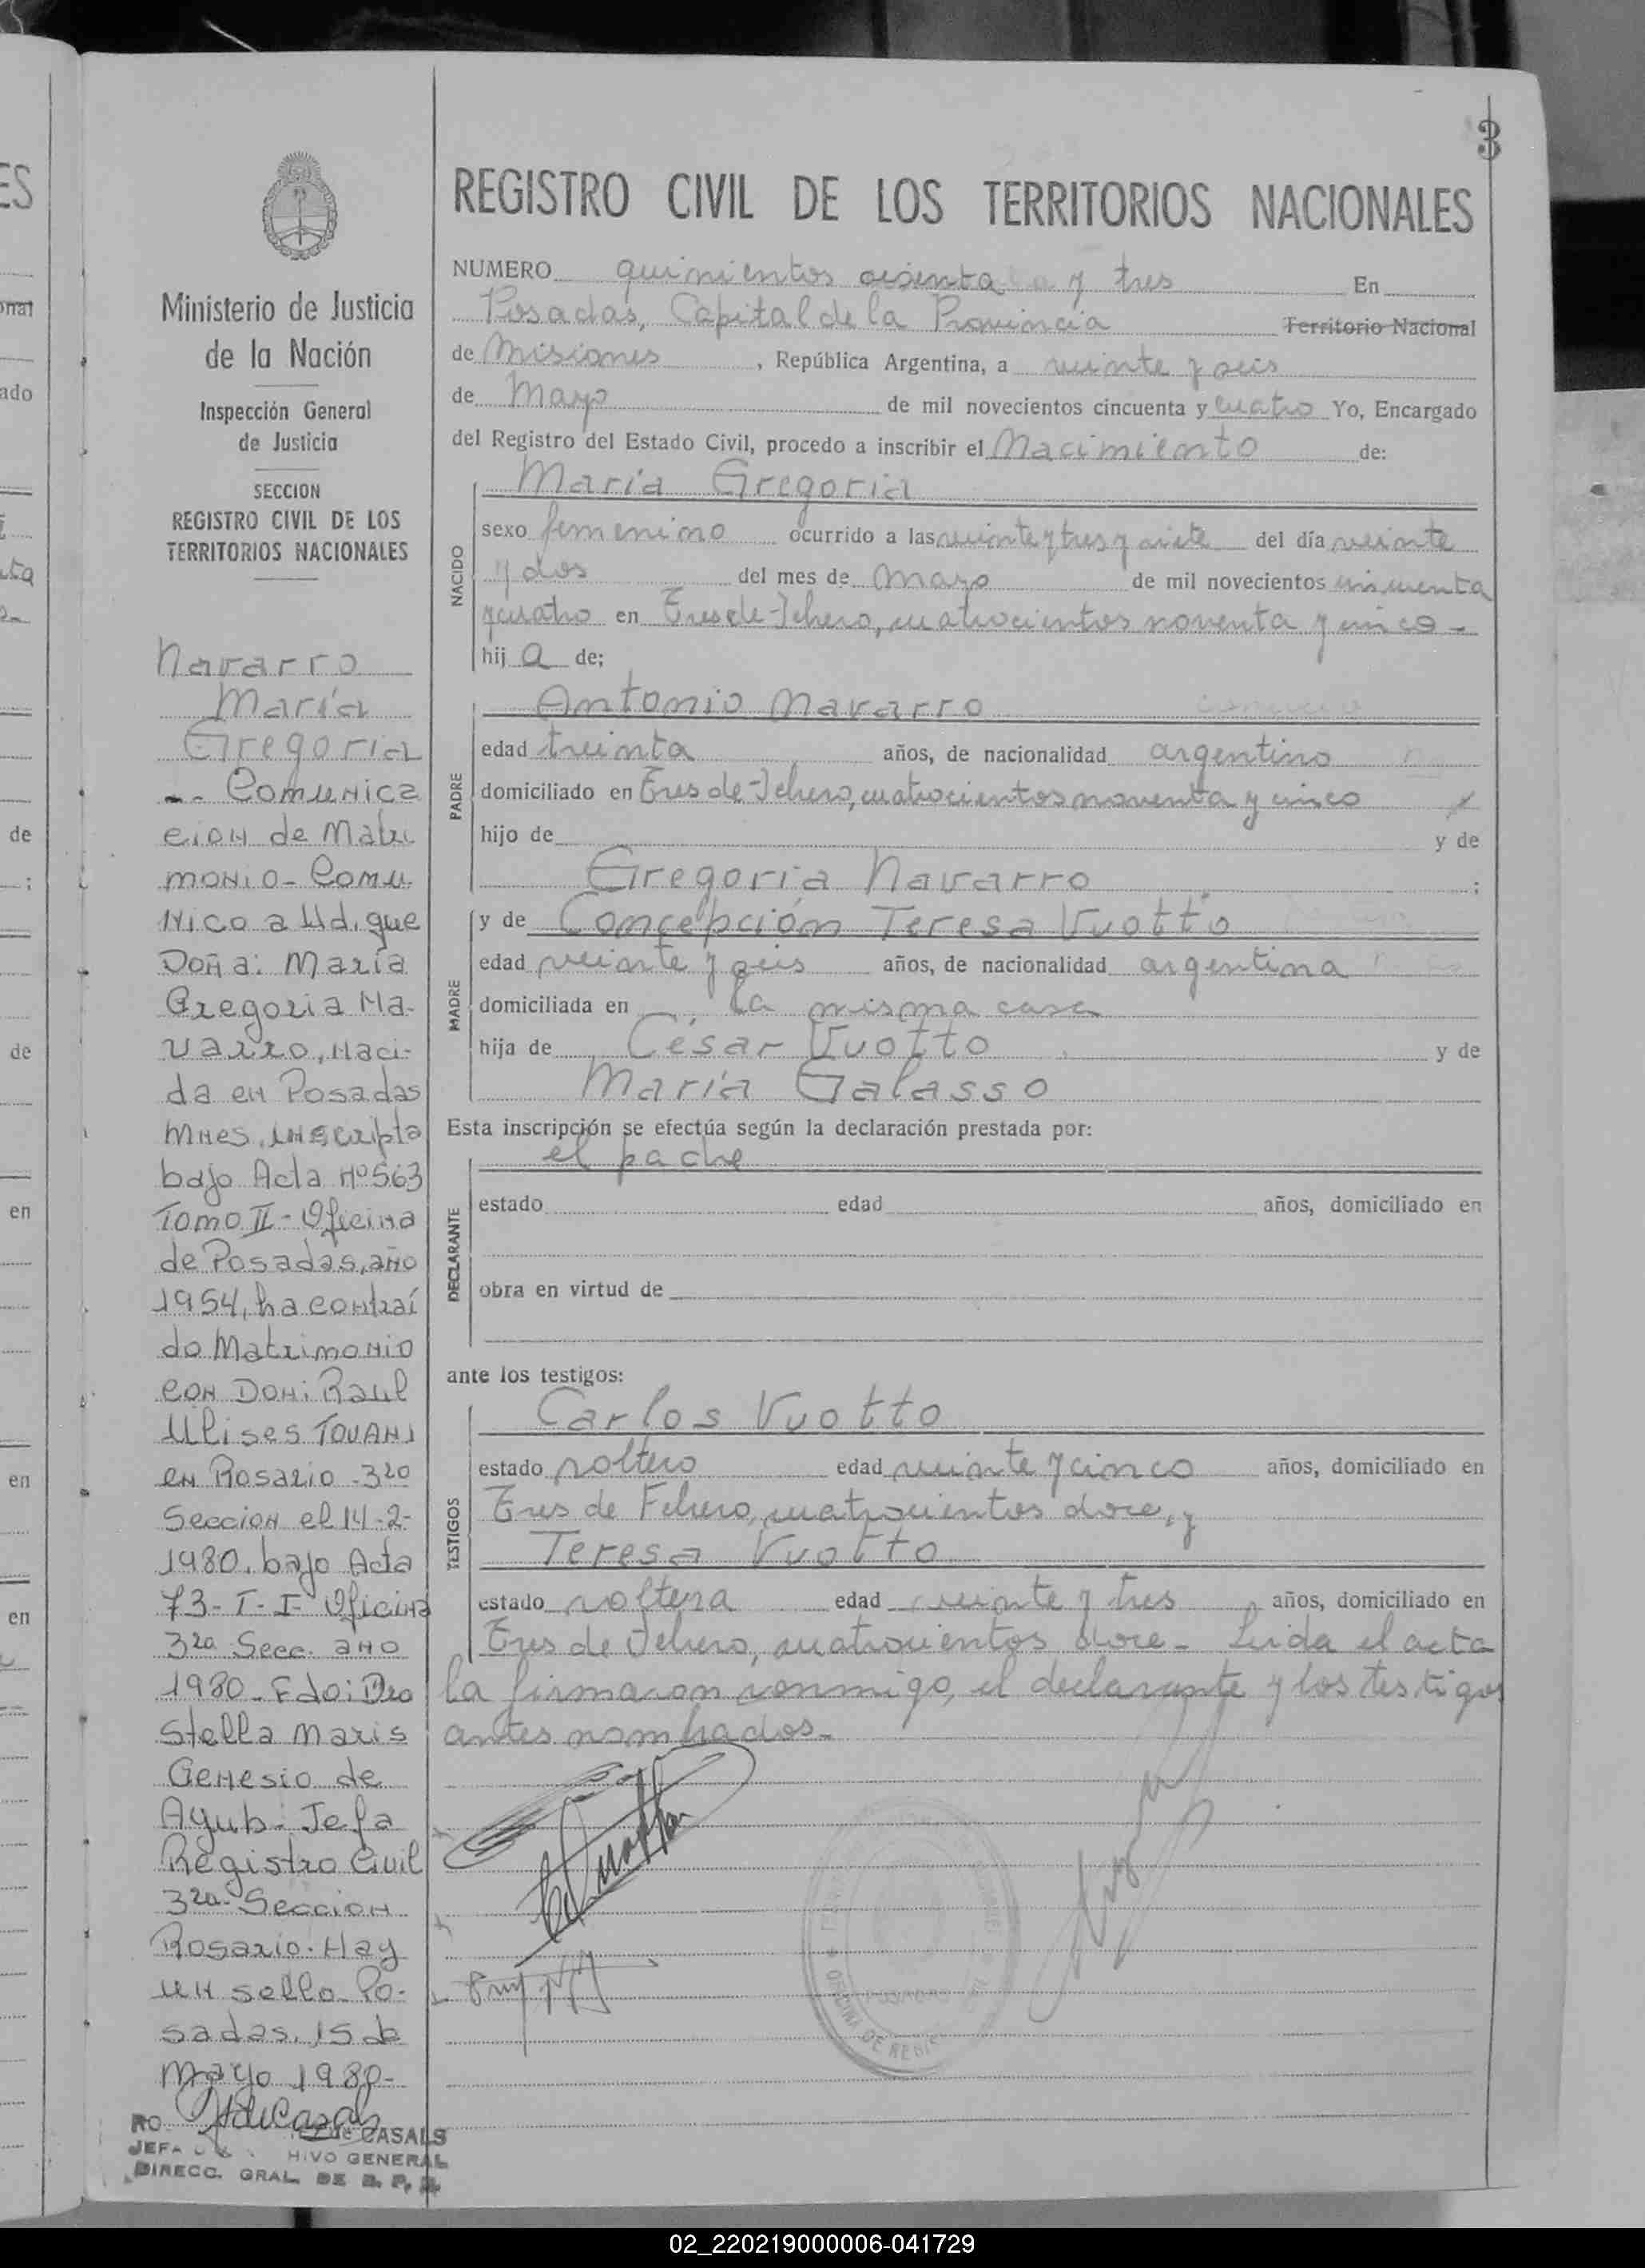 3
REGISTRO CIVIL DE LOS TERRITORIOS NACIONALES
NUMERO quinientos sesenta y tres En
Posadas, Capital de la Provincia Territorio Nacional
de Misiones, República Argentina, a veinte y seis
de Mayo de mil novecientos cincuenta y cuatro Yo, Encargado
del Registro del Estado Civil, procedo a inscribir el Nacimiento de:
NACIDO
María Gregoria
sexo femenino ocurrido a las veinte y tres y siete del día veinte
y dos del mes de mayo de mil novecientos cincuenta
y cuatro en Tres de Febrero, cuatrocientos noventa y cinco -
hij a de;
PADRE
Antonio Navarro
edad treinta años, de nacionalidad argentino
domiciliado en Tres de Febrero, cuatrocientos noventa y cinco
hijo de y de
Gregoria Navarro ;
MADRE
y de Concepción Teresa Vuotto
edad veinte y seis años, de nacionalidad argentina
domiciliada en la misma casa
hija de César Vuotto y de
María Galasso
Esta inscripción se efectúa según la declaración prestada por:
DECLARANTE
el padre
estado edad años, domiciliado en
obra en virtud de
ante los testigos:
TESTIGOS
Carlos Vuotto
estado soltero edad veinte y cinco años, domiciliado en
Tres de Febrero, cuatrocientos doce, y
Teresa Vuotto
estado soltera edad veinte y tres años, domiciliado en
Tres de Febrero, cuatrocientos doce - Leida el acta
la firmaron conmigo, el declarante y los testigos
antes nombrados.-
Ministerio de Justicia
de la Nación
Inspección General
de Justicia
SECCION
REGISTRO CIVIL DE LOS
TERRITORIOS NACIONALES
Navarro
María
Gregoria
-.- Comunica
cion de Matri
monio - Comu
nico a Ud. que
Doña: María
Gregoria Na-
varro, naci-
da en Posadas
Mnes, inscripta
bajo Acta Nº 563
Tomo II - Oficina
de Posadas, año
1954, ha contraí
do Matrimonio
con Don: Raul
Ulises TOVANI
en Rosario - 3ra
Seccion el 14-2-
1980. bajo Acta
73 - T - I - Oficina
3ra Secc. año
1980 - Fdo:
Stella Maris
Genesio de
Ayub - Jefa
Registro Civil
3ra Seccion
Rosario. Hay
un sello. Po-
sadas, 15 de
Mayo 1980-
de CASALS
HIVO GENERAL
DIRECC. GRAL. DE
02_220219000006-041729